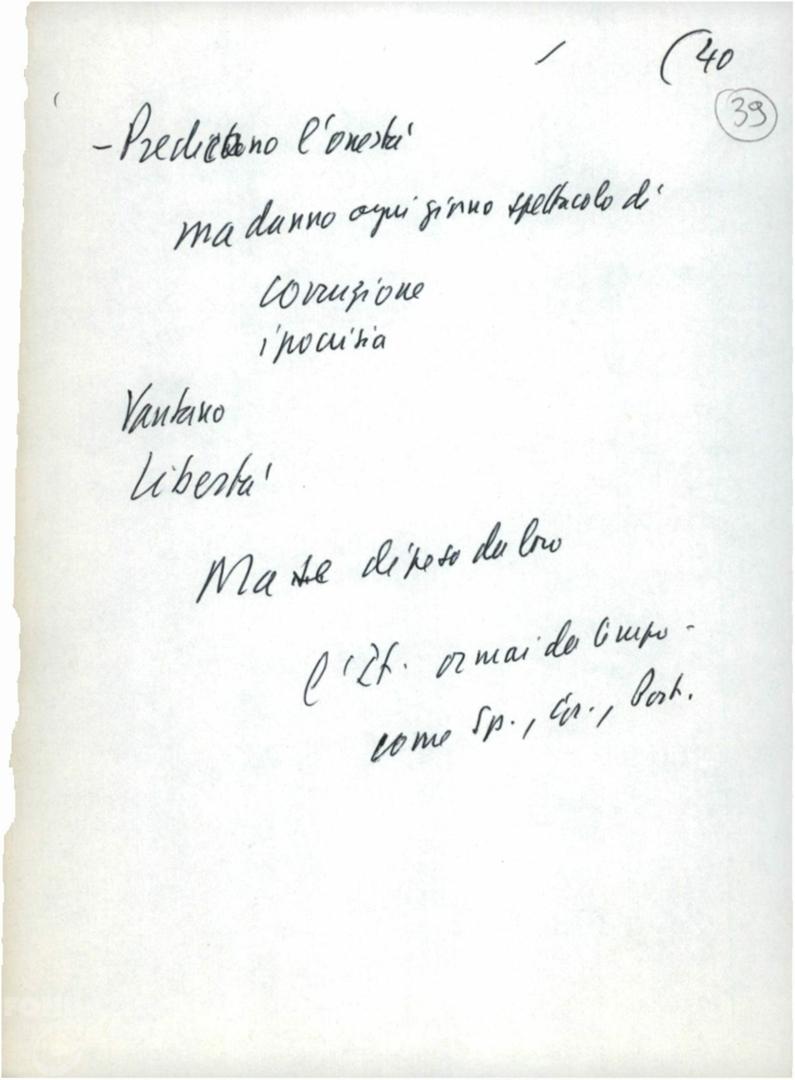 (40
39
- Predicano l'onestà
ma danno ogni giorno spettacolo di
corruzione
ipocrisia
Vantano
Libertà
Ma se dipeso da loro
l'It. ormai da tempo -
come Sp., Gr., Port.